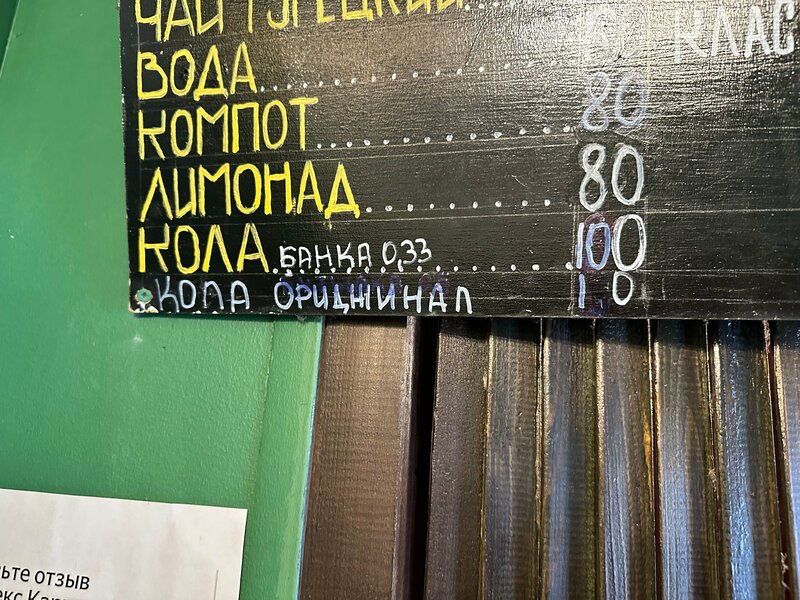 ЧАЙ ТУРЕЦКИЙ...
КЛАС
ВОДА
КОМПОТ 80
ЛИМОНАД 80
КОЛА БАНКА 0,33 100
КОЛА ОРИДЖИНАЛ
ьте отзыв